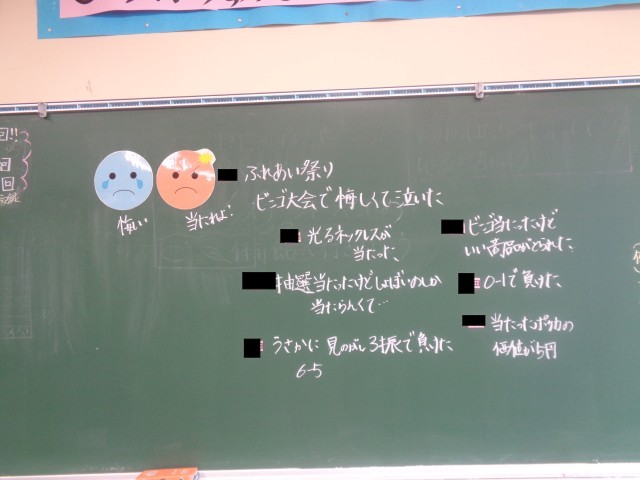 ふれあい祭り
ビンゴ大会で悔しくて泣いた
悔しい
当たれよ!
光るネックレスが
当たった、
ビンゴ当たったけど
いい景品がとられた、
抽選当たったけどしょぼいのしか
当たらんくて…
0-1で負けた、
うさかに 見のがし3振で負けた
6-5
当たったポケカの
価値が5円
回!!
回
回